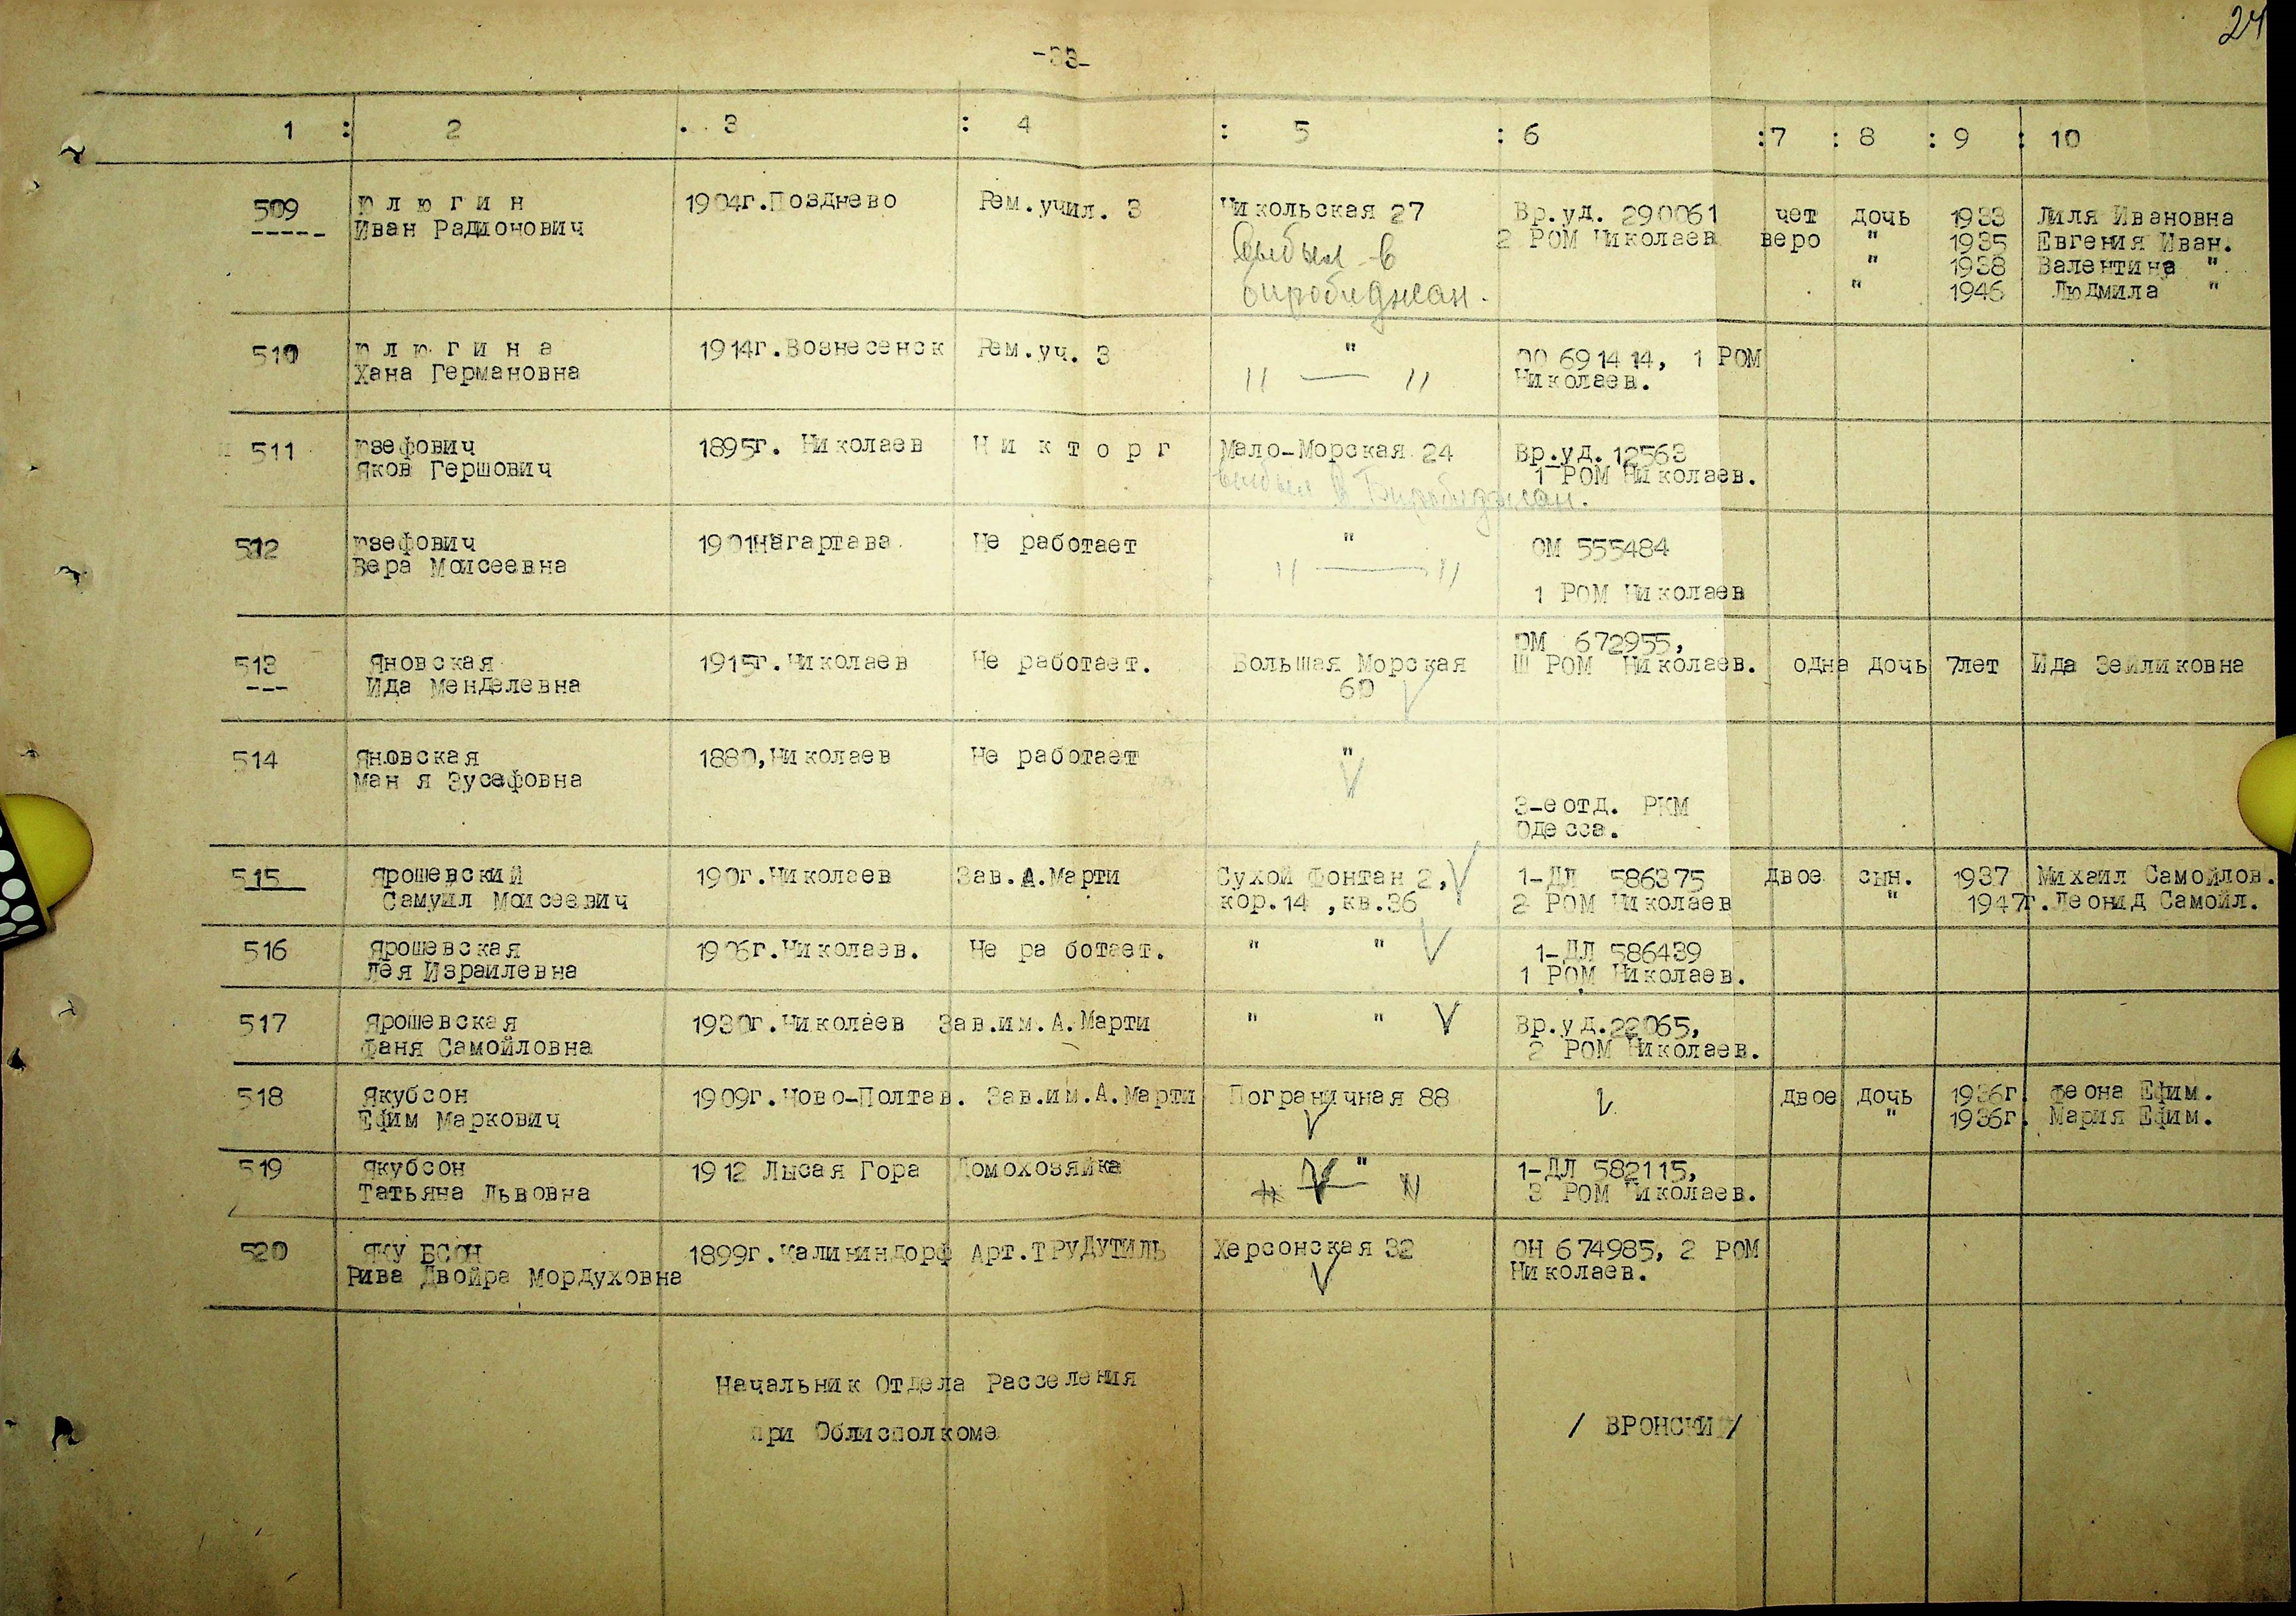 24
-33-
1 : 2 . 3 : 4 : 5 : 6 :7 : 8 : 9 : 10
509 Юлюгин 1904г.Позднево Рем.учил. 3 Никольская 27 Вр.уд. 290061 чет дочь 1933 Лиля Ивановна
----- Иван Радионович выбыл в 2 РОМ Николаев веро " 1935 Евгения Иван.
биробиджан. " 1938 Валентина "
" 1946 Людмила "
510 Юлюгина 1914г.Вознесенск Рем.уч. 3 " 00 691414, 1 РОМ
Хана Германовна " — " Николаев.
511 Юзефович 1895г. Николаев Никторг Мало-Морская 24 Вр.уд. 12563
Яков Гершович выбыл в Биробиджан. 1 РОМ Николаев.
512 Юзефович 1901Нагартава Не работает " ОМ 555484
Вера Моисеевна " — " 1 РОМ Николаев
ОМ 672955,
513 Яновская 1915г.Николаев Не работает. Большая Морская Ш РОМ Николаев. одна дочь 7лет Ида Зейликовна
--- Ида Менделевна 60 V
514 Яновская 1880,Николаев Не работает "
Ман я Зусефовна V
3-е отд. РКМ
Одесса.
515 Ярошевский 190г.Николаев Зав.А.Марти Сухой Фонтан 2, V 1-ДЛ 586375 двое сын. 1937 Михаил Самойлов.
Самуил Моисеевич кор.14 ,кв.36 2 РОМ Николаев " 1947г.Леонид Самойл.
516 Ярошевская 1906г.Николаев. Не ра ботает. " " V 1-ДЛ 586439
Лея Израилевна 1 РОМ Николаев.
517 Ярошевская 1930г.Николаев Зав.им.А.Марти " " V Вр.уд.22065,
Фаня Самойловна 2 РОМ Николаев.
518 Якубсон 1909г.Ново-Полтав. Зав.им.А.Марти Пограничная 88 V двое дочь 1936г. Феона Ефим.
Ефим Маркович V " 1936г. Мария Ефим.
519 Якубсон 1912 Лысая Гора Домохозяйка " 1-ДЛ 582115,
Татьяна Львовна " V " 3 РОМ Николаев.
520 ЯКУ БСОН 1899г.Калининдорф Арт.ТРУДУТИЛЬ Херсонская 32 ОН 674985, 2 РОМ
Рива Двойра Мордуховна V Николаев.
Начальник Отдела Расселения
при Облисполкоме / ВРОНСКИЙ/